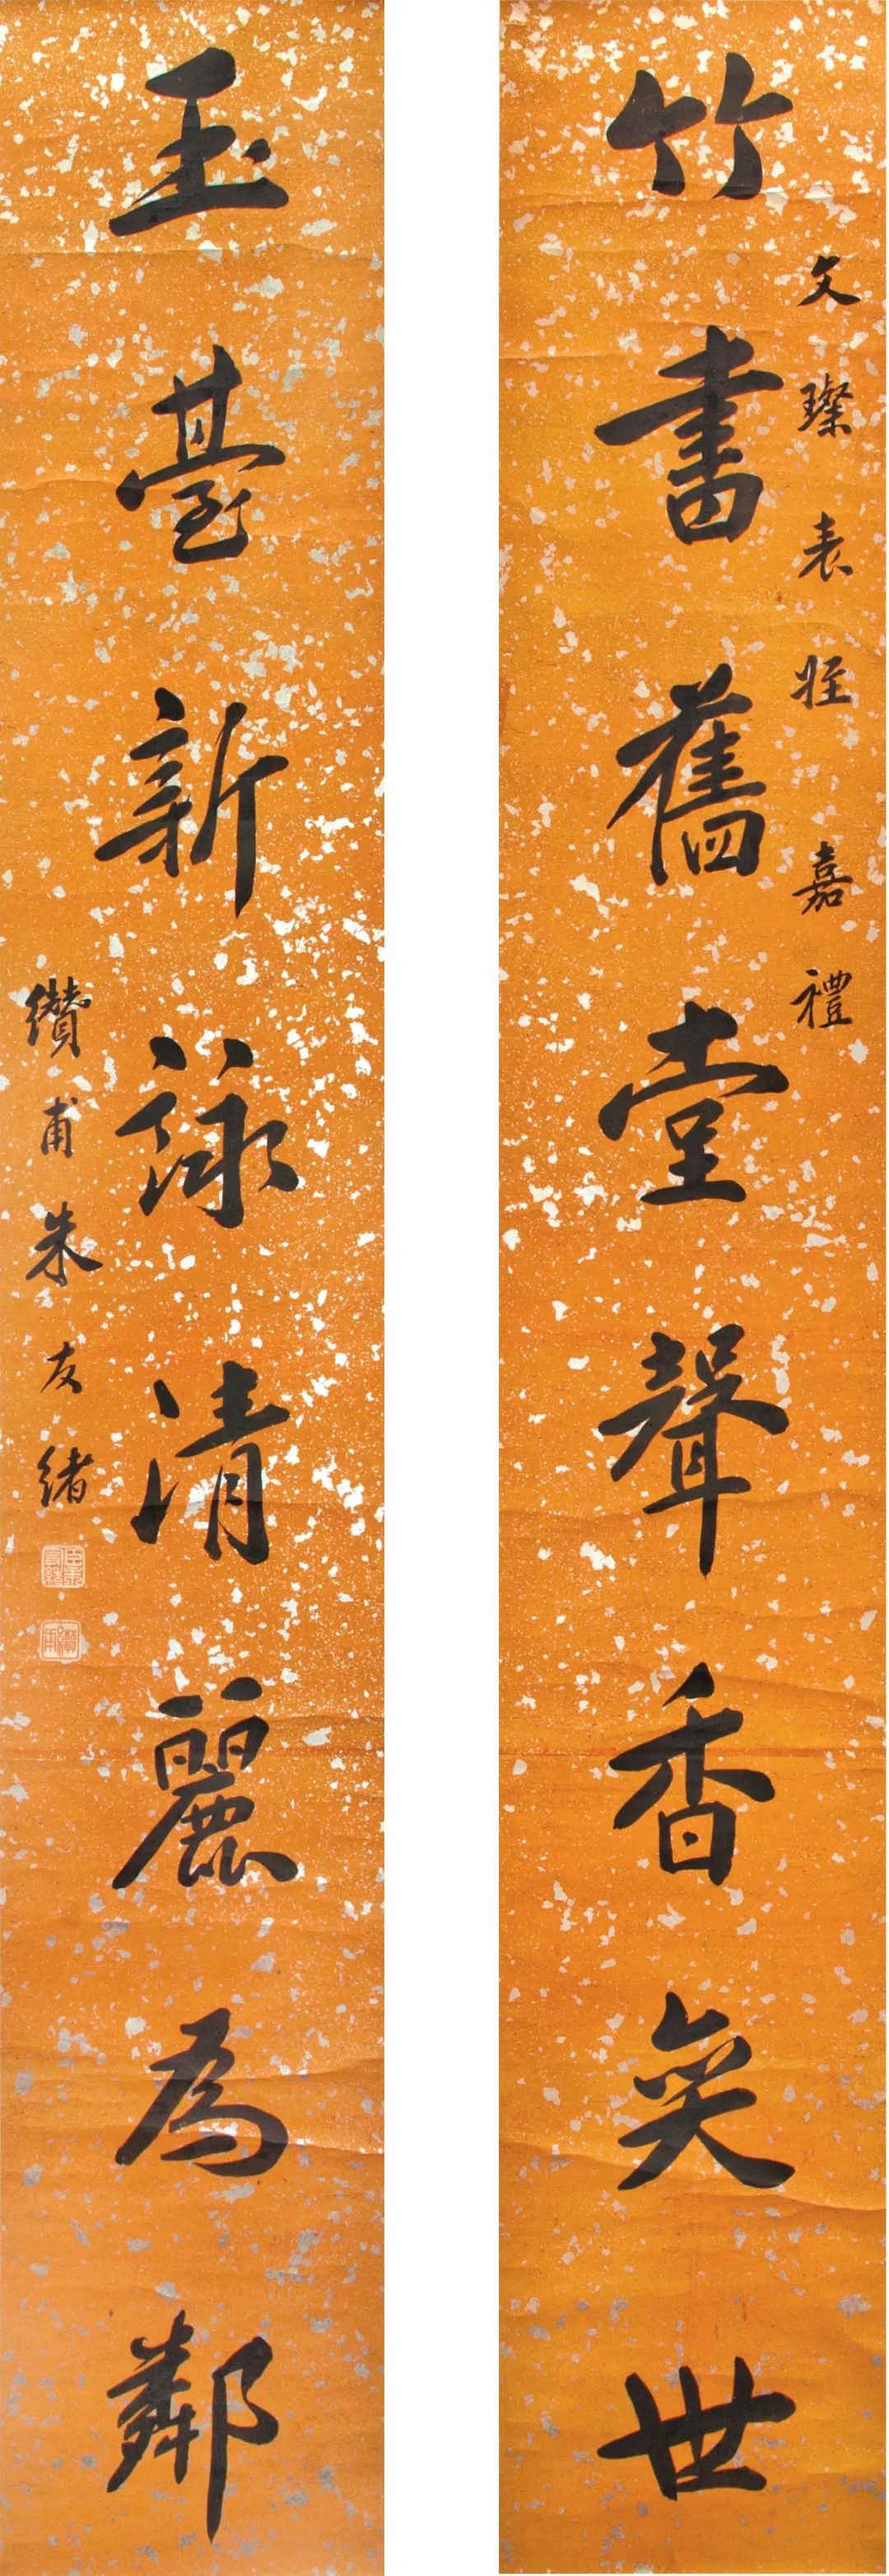 文璨表姪嘉禮
竹書舊堂聲香奕世
玉臺新詠清麗為鄰
纘甫朱友緒
臣朱友緒
纘甫